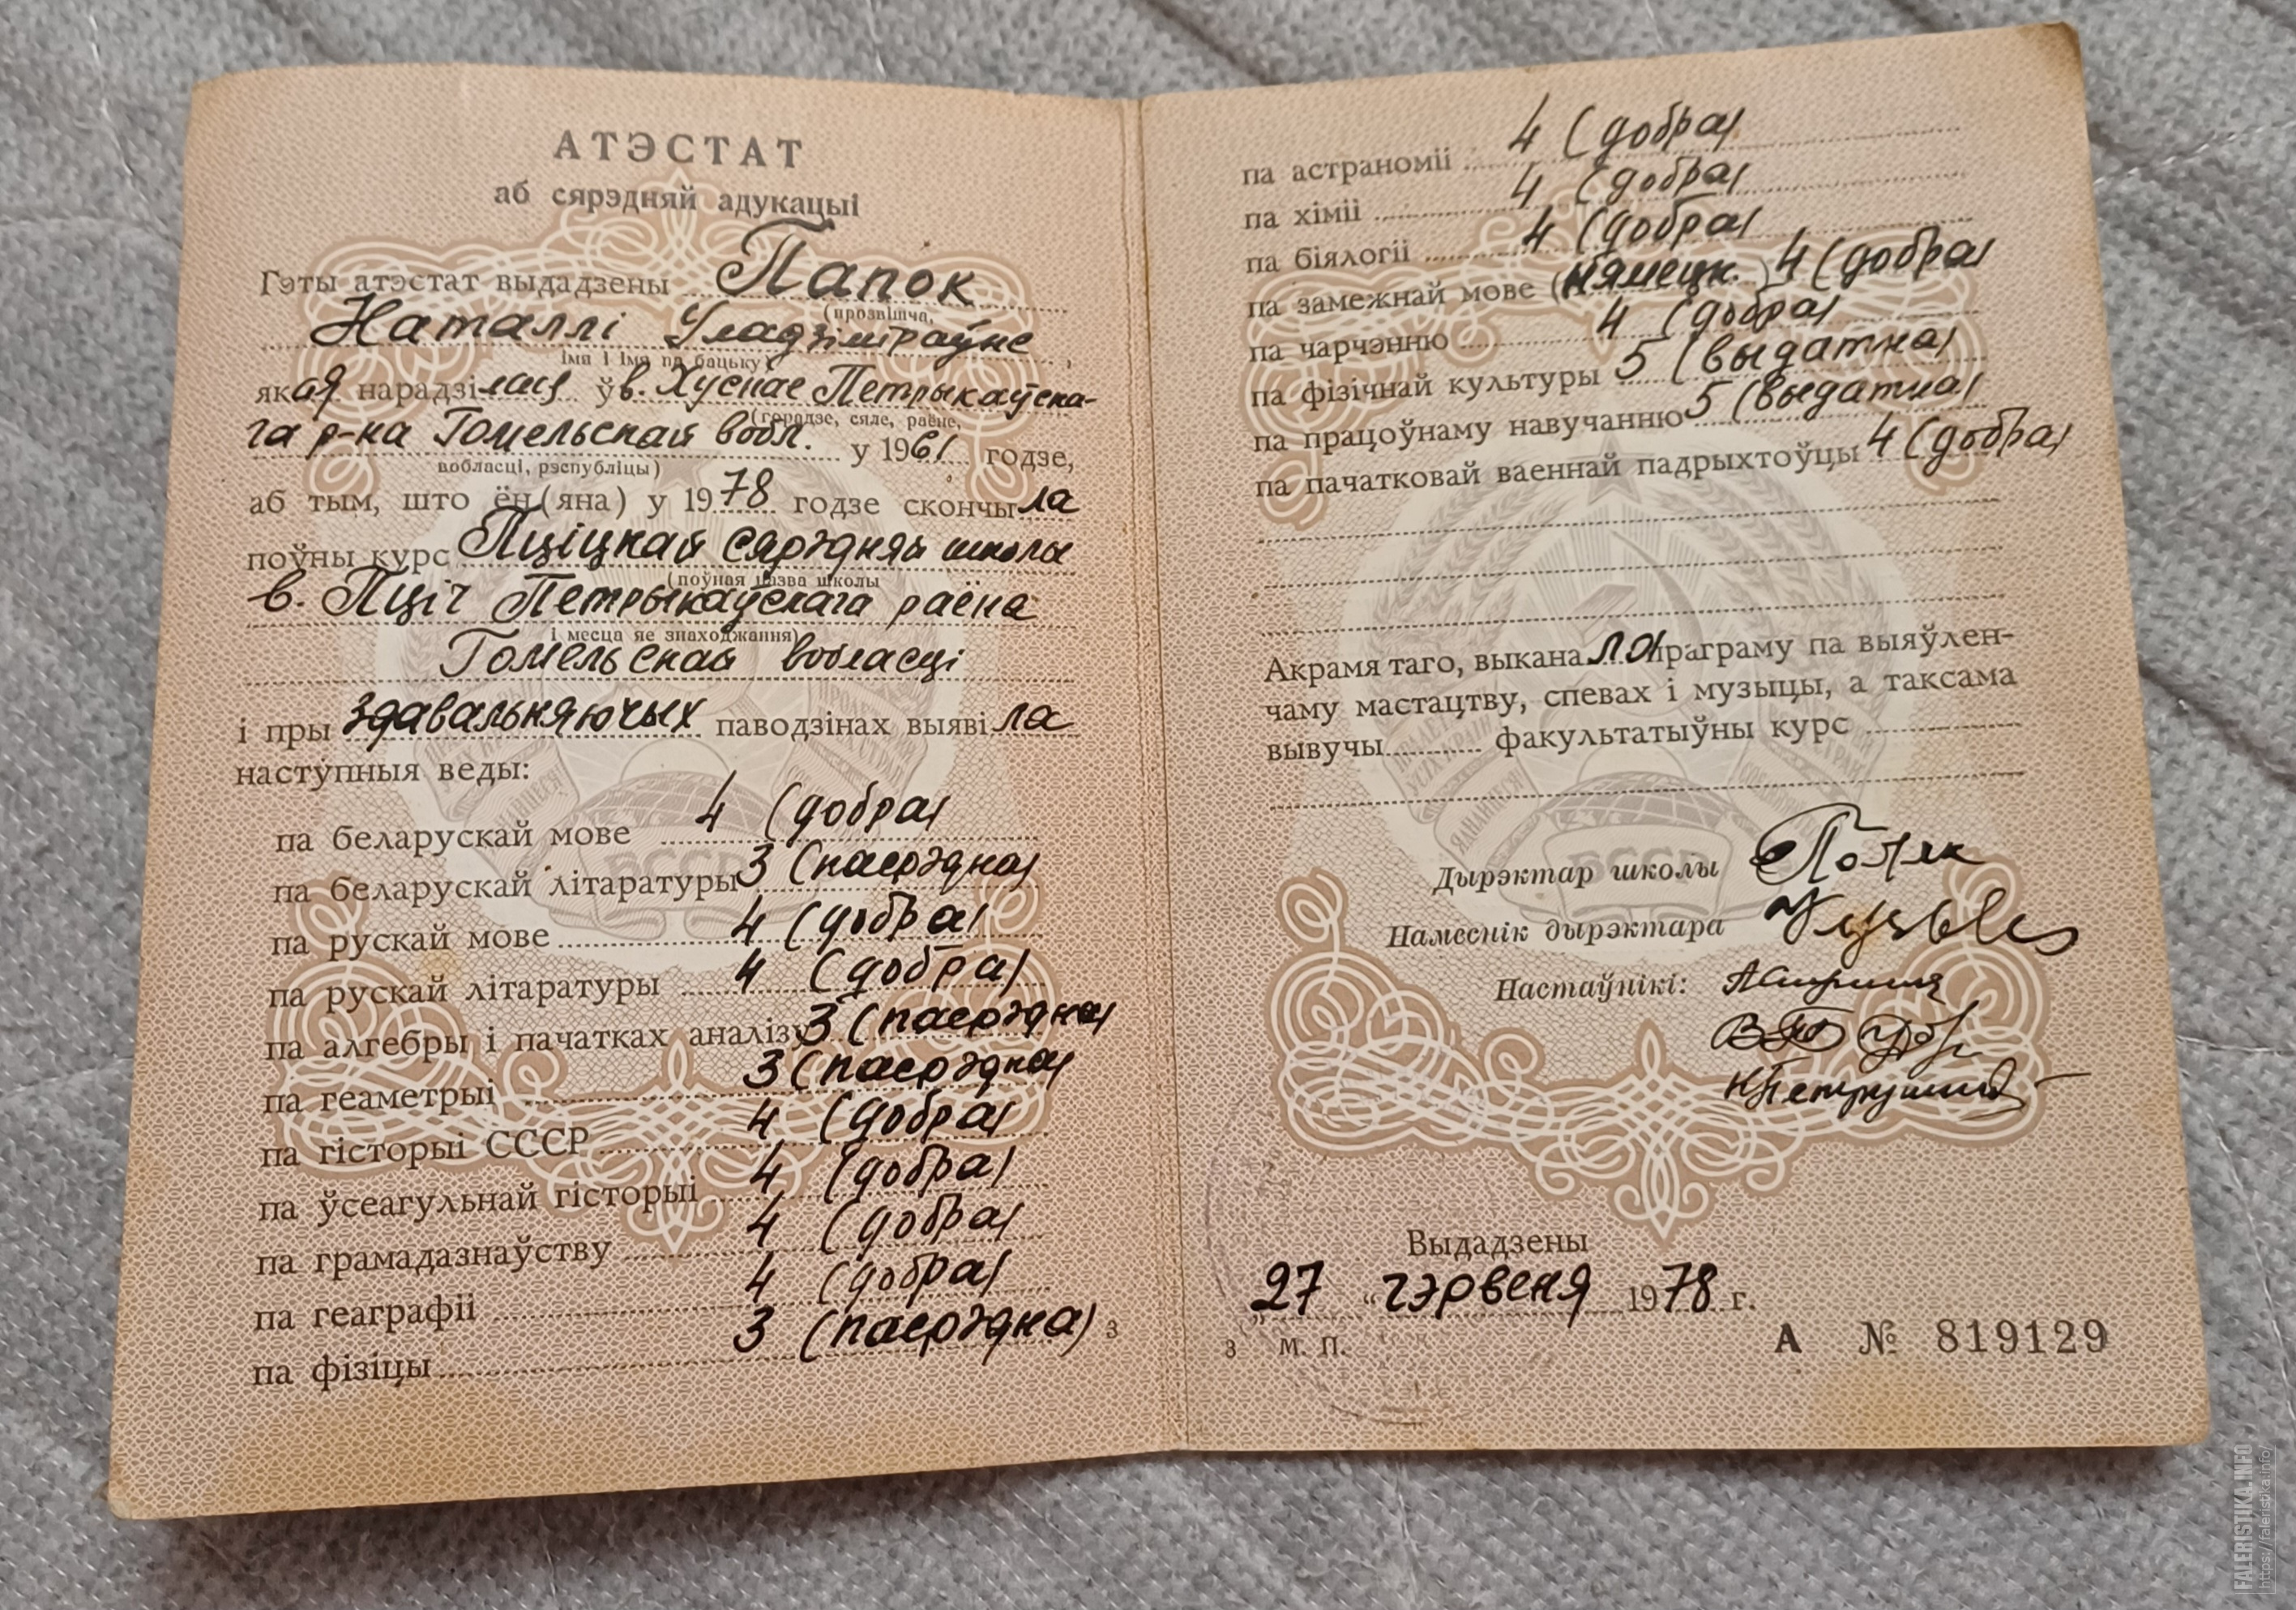 АТЭСТАТ
аб сярэдняй адукацыі
Гэты атэстат выдадзены Папок
(прозвішча,
Наталлі Уладзіміраўне,
імя і імя па бацьку)
якая нарадзілася ў в. Хуснае Петрыкаўска-
(горадзе, сяле, раёне,
га р-на Гомельскай вобл. у 1961 годзе,
вобласці, рэспубліцы)
аб тым, што ён (яна) у 1978 годзе скончыла
поўны курс Пціцкай сярэдняй школы
(поўная назва школы
в. Пціч Петрыкаўскага раёна
і месца яе знаходжання)
Гомельскай вобласці
і пры здавальняючых паводзінах выявіла
наступныя веды:
па беларускай мове 4 (добра)
па беларускай літаратуры 3 (пасрэдна)
па рускай мове 4 (добра)
па рускай літаратуры 4 (добра)
па алгебры і пачатках аналізу 3 (пасрэдна)
па геаметрыі 3 (пасрэдна)
па гісторыі СССР 4 (добра)
па ўсеагульнай гісторыі 4 (добра)
па грамадазнаўству 4 (добра)
па геаграфіі 4 (добра)
па фізіцы 3 (пасрэдна) 3
па астраноміі 4 (добра)
па хіміі 4 (добра)
па біялогіі 4 (добра)
па замежнай мове (нямецк.) 4 (добра)
па чарчэнню 4 (добра)
па фізічнай культуры 5 (выдатна)
па працоўнаму навучанню 5 (выдатна)
па пачатковай ваеннай падрыхтоўцы 4 (добра)
Акрамя таго, выканала праграму па выяўлен-
чаму мастацтву, спевах і музыцы, а таксама
вывучы факультатыўны курс
БССР
БССР
Дырэктар школы
Намеснік дырэктара
Настаўнікі:
Выдадзены
„27“ чэрвеня 1978 г.
3 М. П.
А № 819129
FALERISTIKA.INFO
https://faleristika.info/